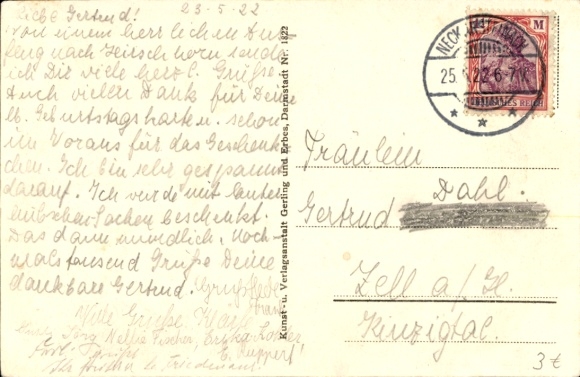 Liebe Gertrud! 23-5-22
Von einem herrlichen Aus-
flug nach Hirschhorn sende
ich Dir viele herzl. Grüße.
Auch vielen Dank für Deine
lb. Geburtstagskarten. schon
im Voraus für das Geschenk-
chen. Ich bin sehr gespannt
darauf. Ich wurde mit lauter
Sachen beschenkt.
Das dann mündlich, Noch-
mals tausend Grüße Deine
dankbare Gertrud.
Viele Grüße
Nellie Fischer,
E. Ruppert
Kunst- u. Verlagsanstalt Gerling und Erbes, Darmstadt Nr. 1822
M
25. 22.6-7
Fräulein
Dahl.
Gertrud
Zell a/H.
Kinzigtal.
3€